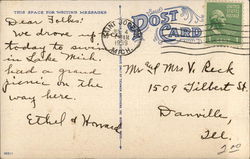 THIS SPACE FOR WRITING MESSAGES
Dear Folks!
We drove up
today to swim
in Lake Mich.
had a grand
picnic on the
way here.
Ethel & Howard
POST CARD
SAINT JOSEPH
MICH.
Mr and Mrs V. Reck
1509 Gilbert St.
Danville,
Ill.